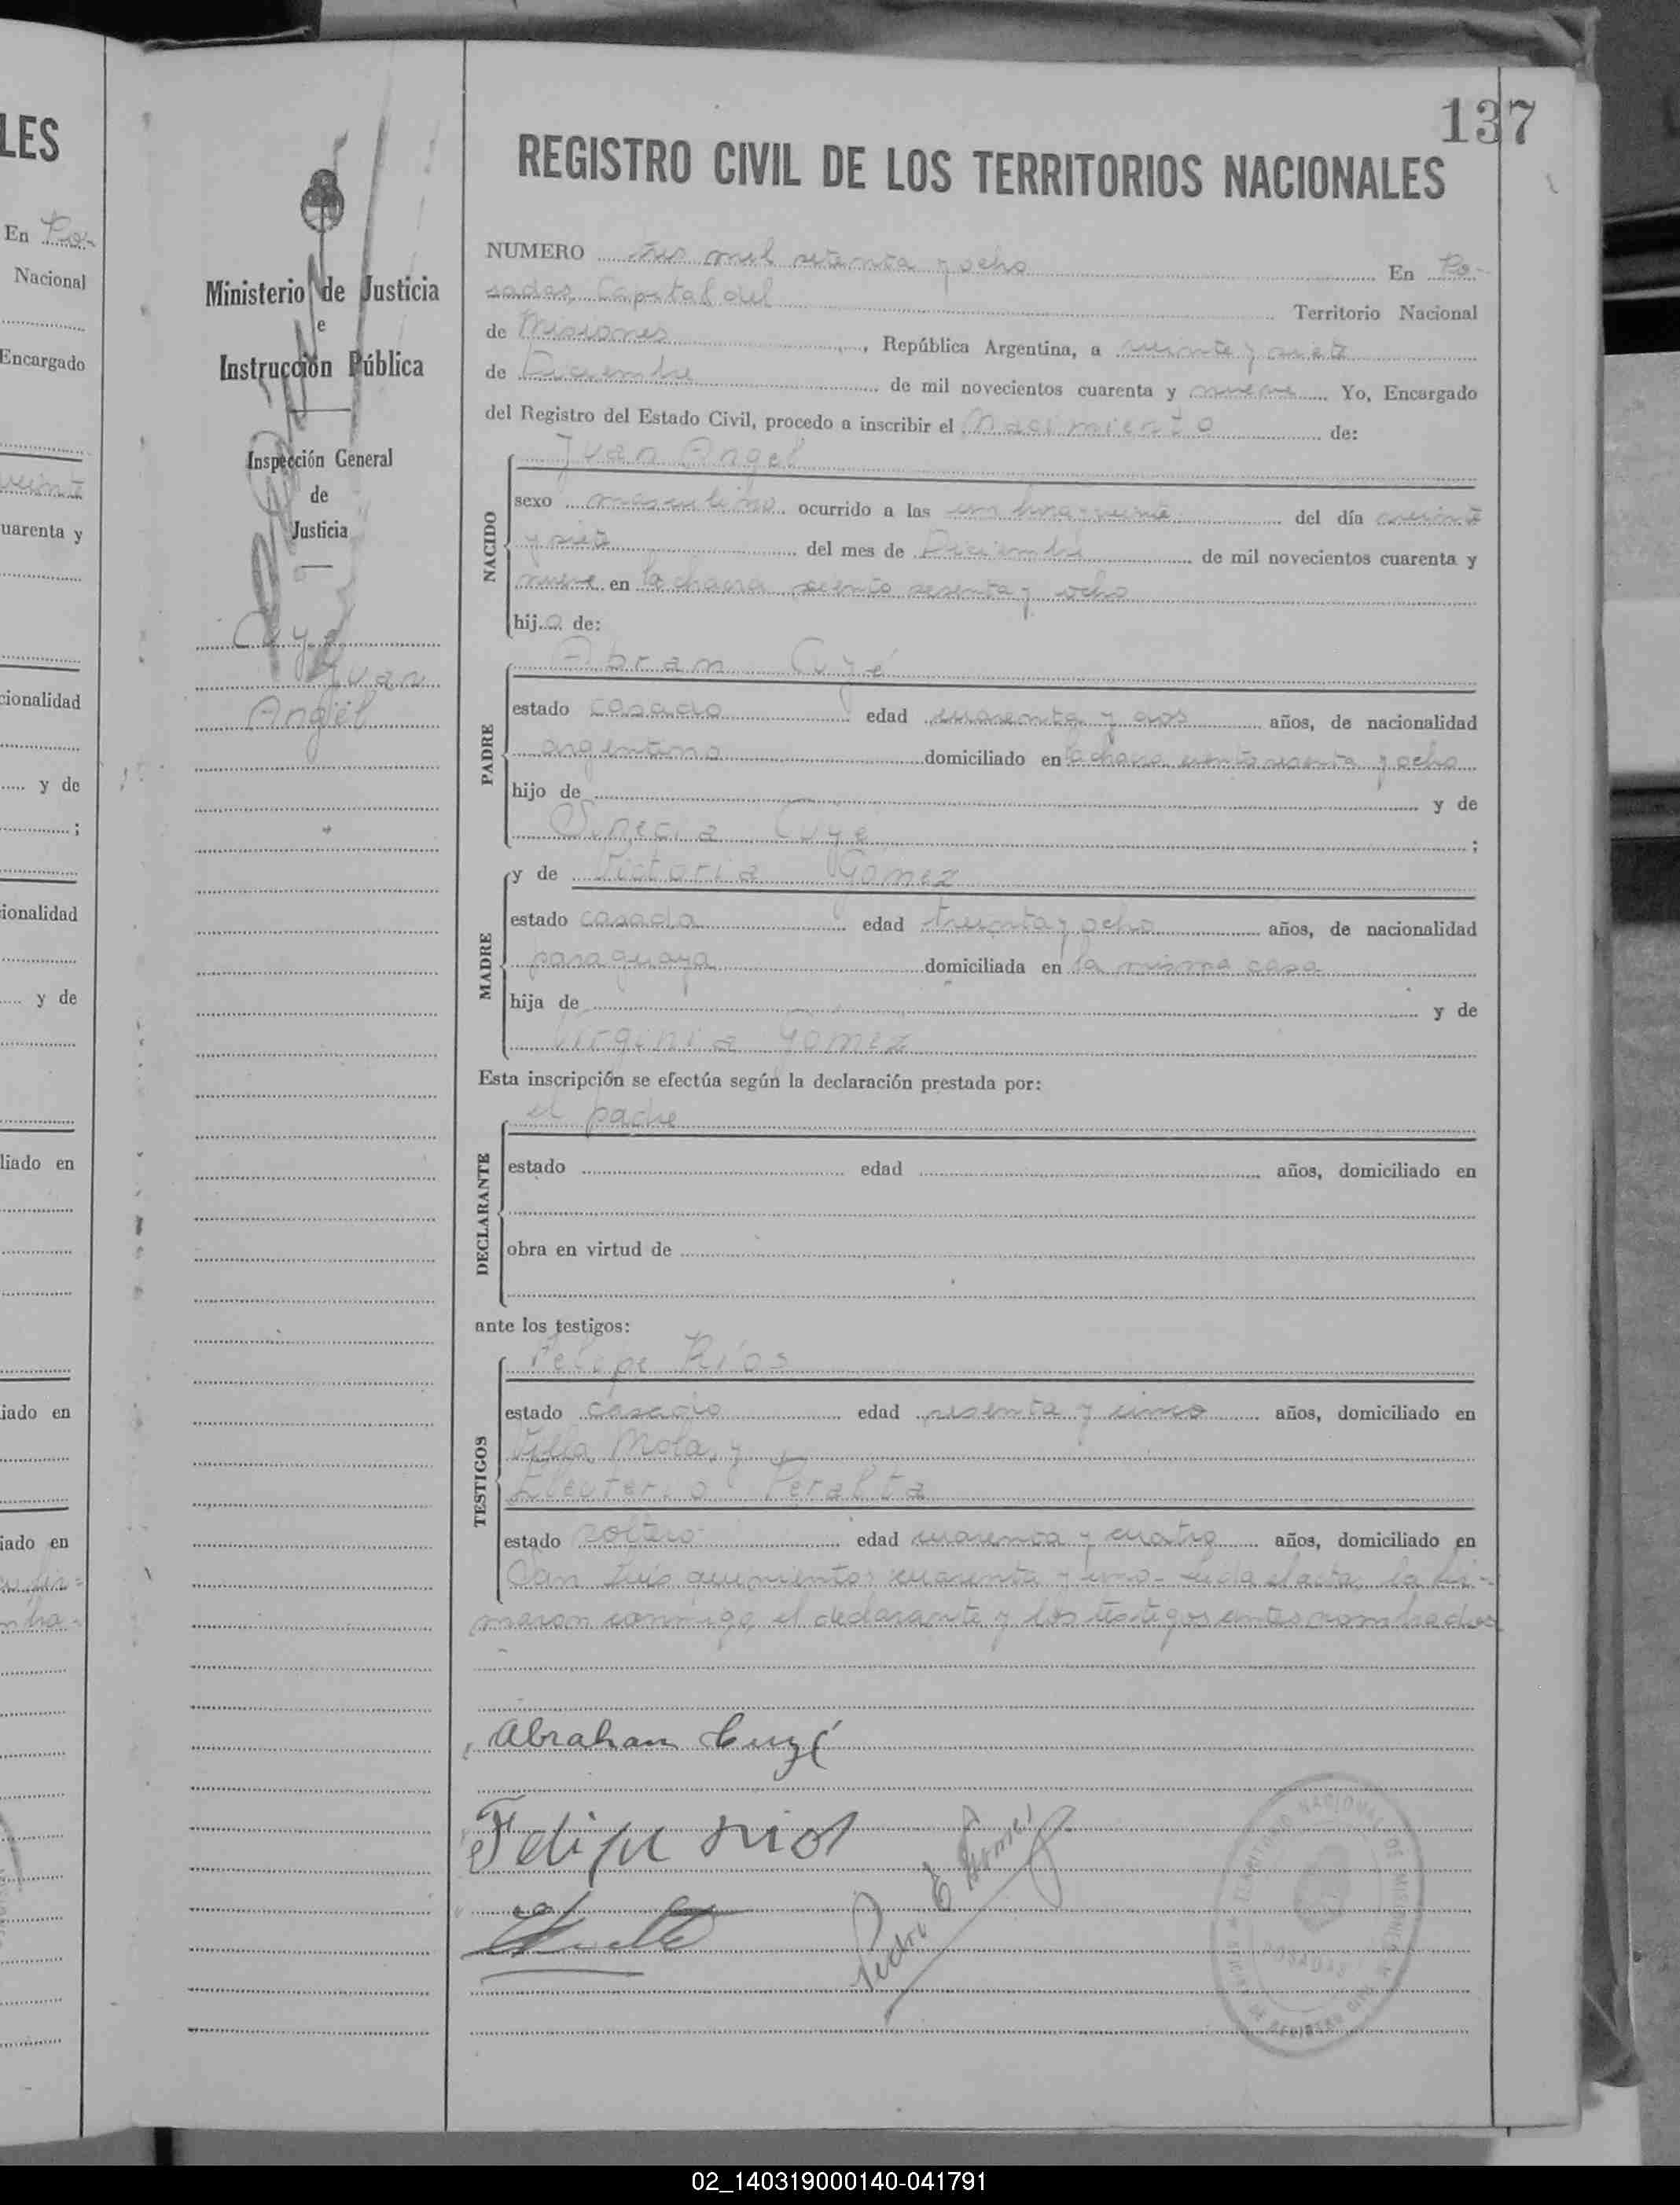 LES
En Po-
Nacional
Encargado
veinte
uarenta y
cionalidad
y de
;
ionalidad
y de
liado en
iado en
iado en
Ministerio de Justicia
e
Instrucción Pública
Inspección General
de
Justicia
Cuyé
Juan
Angel
137
REGISTRO CIVIL DE LOS TERRITORIOS NACIONALES
NUMERO tres mil setenta y ocho En Po-
sadas, Capital del Territorio Nacional
de Misiones, República Argentina, a veinte y siete
de Diciembre de mil novecientos cuarenta y nueve Yo, Encargado
del Registro del Estado Civil, procedo a inscribir el Nacimiento de:
NACIDO
Juan Angel
sexo masculino ocurrido a las un hora veinte del día veinte
y siete del mes de Diciembre de mil novecientos cuarenta y
nueve en la chacra ciento sesenta y ocho
hijo de:
PADRE
Abram Cuyé
estado casado edad cuarenta y dos años, de nacionalidad
argentina domiciliado en la chacra ciento sesenta y ocho
hijo de y de
Cuyé ;
MADRE
y de Victoria Gómez
estado casada edad treinta y ocho años, de nacionalidad
paraguaya domiciliada en la misma casa
hija de y de
Virginia Gómez
Esta inscripción se efectúa según la declaración prestada por:
DECLARANTE
el padre
estado edad años, domiciliado en
obra en virtud de
ante los testigos:
TESTIGOS
Felipe Ríos
estado casado edad sesenta y cinco años, domiciliado en
Villa Mola, y
Eleuterio Peralta
estado soltero edad cuarenta y cuatro años, domiciliado en
San Luis quinientos cuarenta y uno - Leída el acta, la fir-
maron conmigo, el declarante y los testigos antes nombrados
Abraham Cuyé
Felipe Rios
Pedro E
POSADAS
02_140319000140-041791